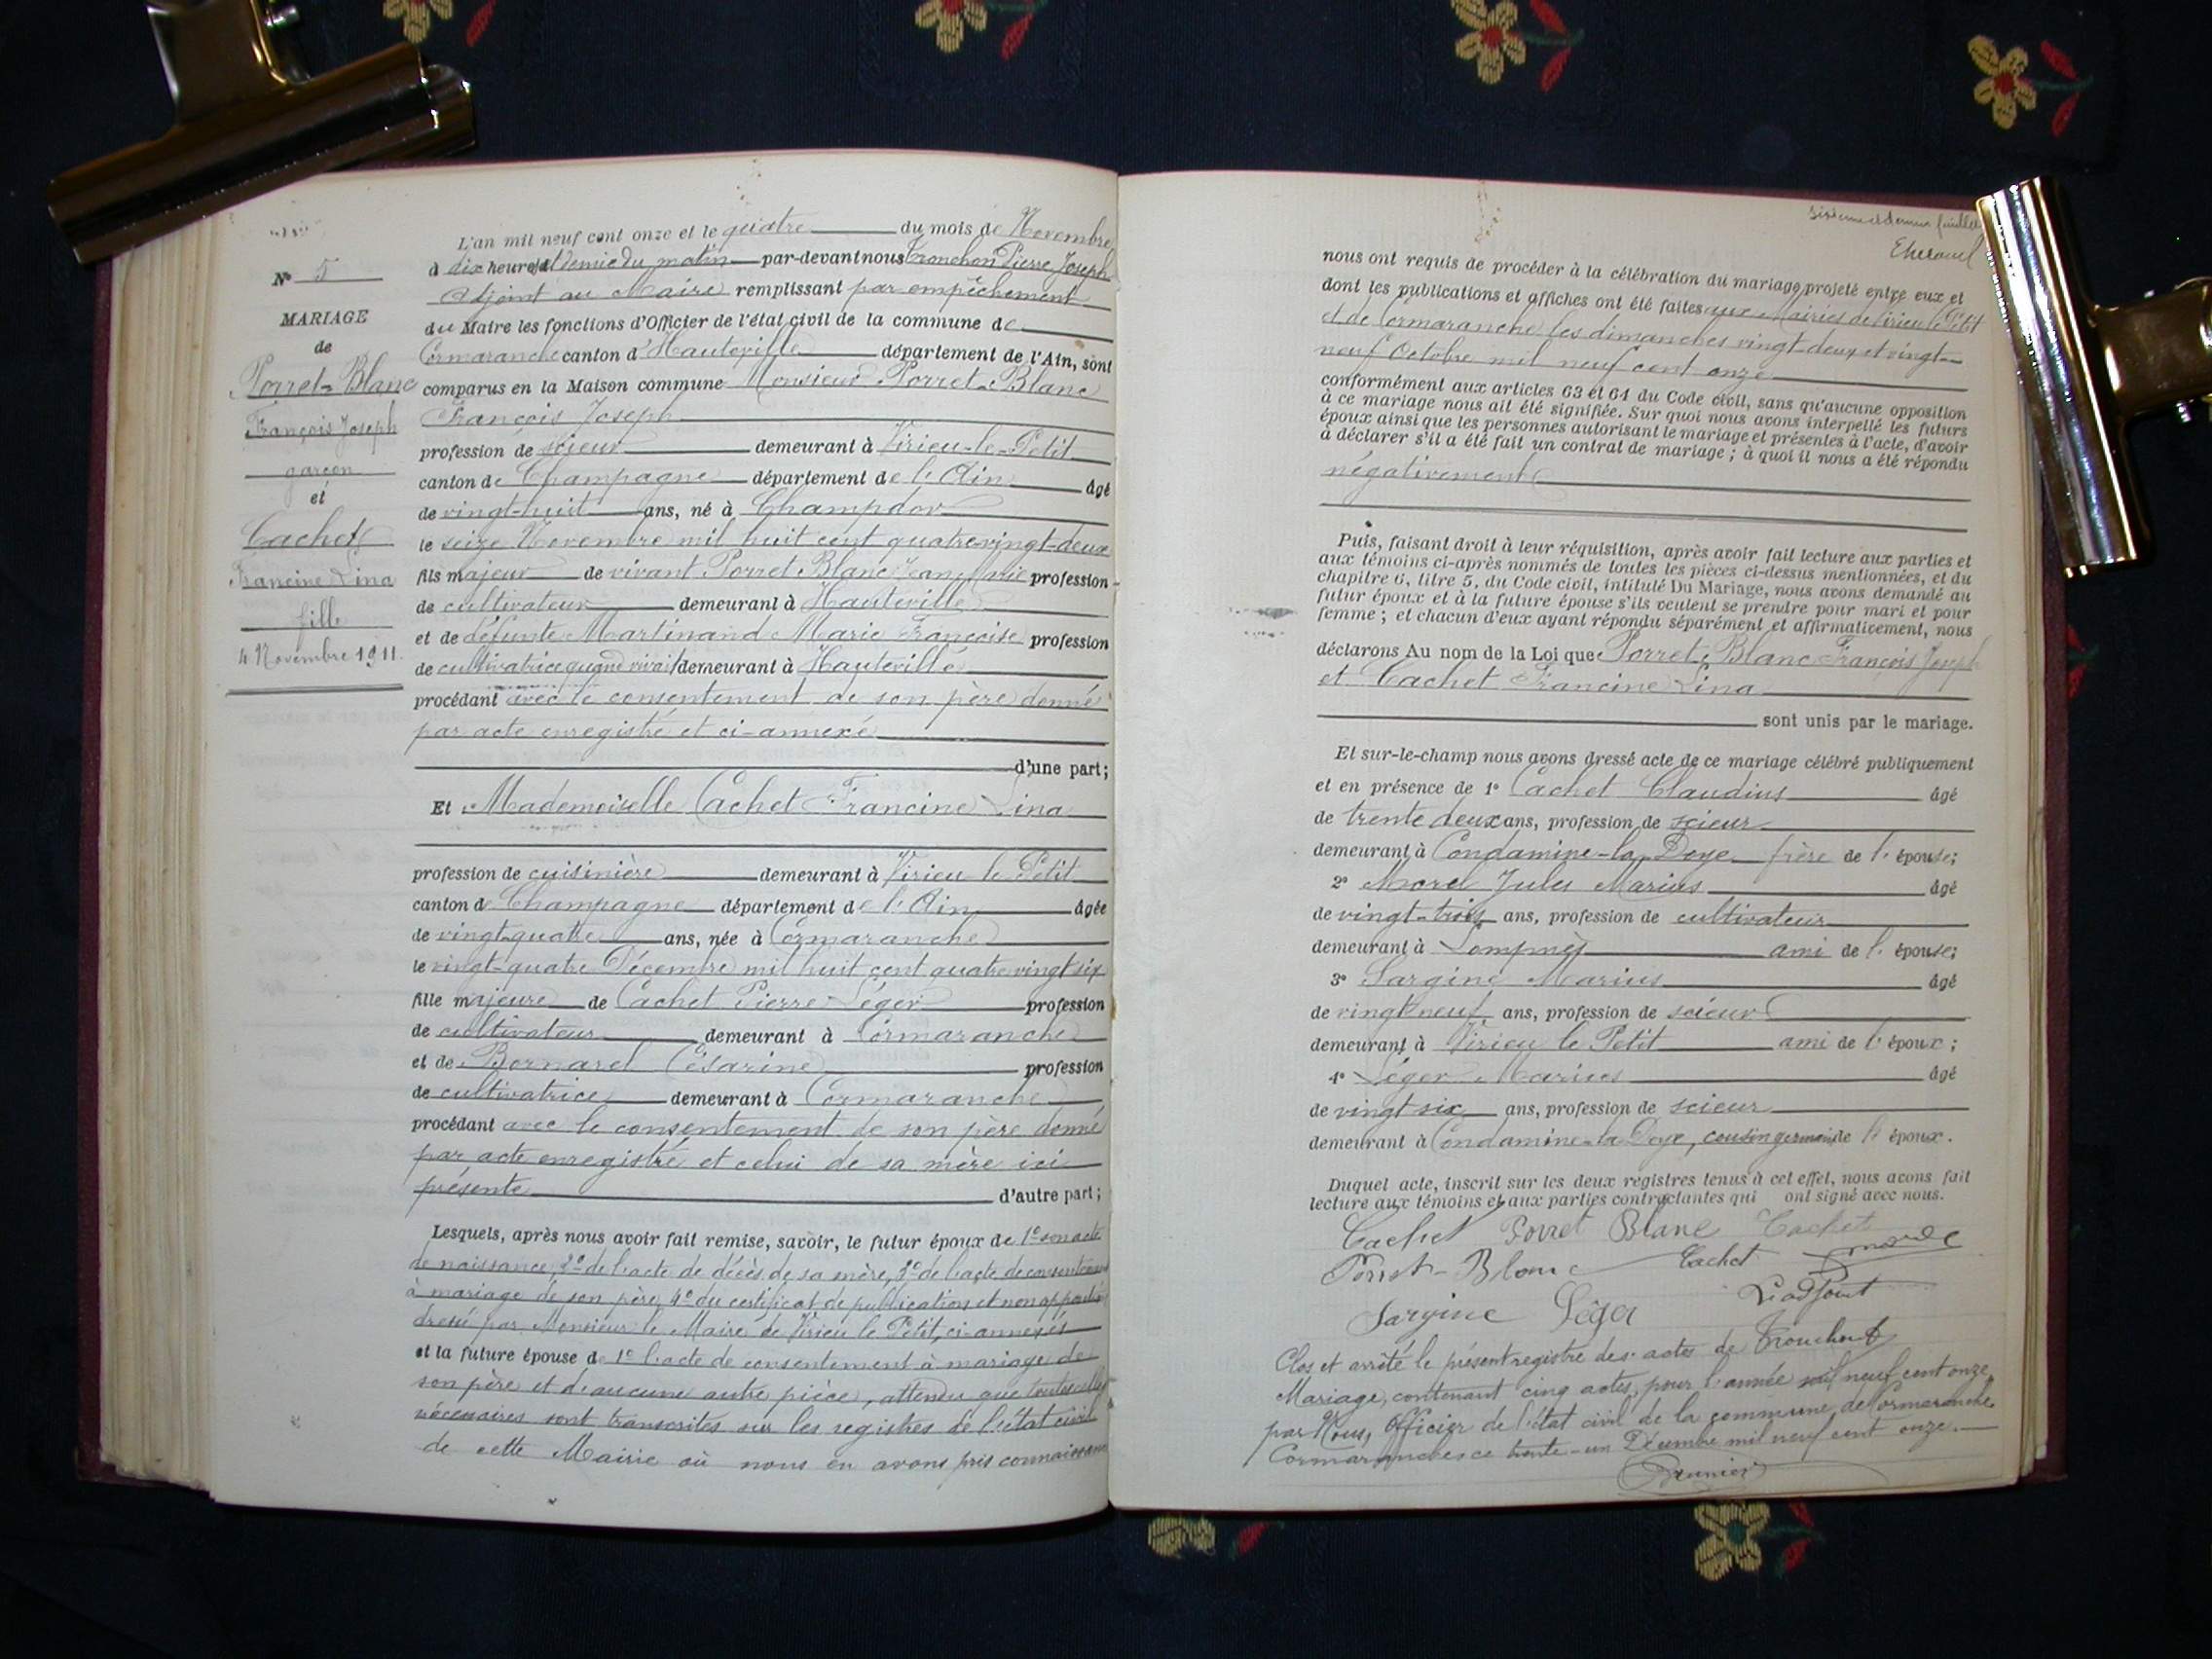 N° 5
MARIAGE
de
Porret-Blanc
François Joseph
garçon
et
Cachet
Francine Lina
fille
4 Novembre 1911.
L'an mil neuf cent onze et le quatre du mois de Novembre
à dix heures et demie du matin par-devant nous Tronchon Pierre Joseph
Adjoint au Maire remplissant par empêchement
du Maire les fonctions d'Officier de l'état civil de la commune de
Cormaranche canton d'Hauteville département de l'Ain, sont
comparus en la Maison commune Monsieur Porret-Blanc
François Joseph
profession de scieur demeurant à Virieu-le-Petit
canton de Champagne département de l'Ain âgé
de vingt-huit ans, né à Champdor
le seize Novembre mil huit cent quatre-vingt-deux
fils majeur de vivant Porret-Blanc Jean Marie profession
de cultivateur demeurant à Hauteville
et de défunte Martinand Marie Françoise profession
de cultivatrice quand vivait demeurant à Hauteville
procédant avec le consentement de son père donné
par acte enregistré et ci-annexé
d'une part;
Et Mademoiselle Cachet Francine Lina
profession de cuisinière demeurant à Virieu le Petit
canton de Champagne département de l'Ain âgée
de vingt-quatre ans, née à Cormaranche
le vingt-quatre Décembre mil huit cent quatre vingt six
fille majeure de Cachet Pierre Léger profession
de cultivateur demeurant à Cormaranche
et de Bornarel Césarine profession
de cultivatrice demeurant à Cormaranche
procédant avec le consentement de son père donné
par acte enregistré et celui de sa mère ici
présente d'autre part;
Lesquels, après nous avoir fait remise, savoir, le futur époux de 1° son acte
de naissance, 2° de l'acte de décès de sa mère, 3° de l'acte de consentement
à mariage de son père, 4° du certificat de publication et non opposition
dressé par Monsieur le Maire de Virieu le Petit, ci-annexés
et la future épouse de 1° l'acte de consentement à mariage de
son père et d'aucune autre pièce, attendu que toutes celles
nécessaires sont transcrites sur les registres de l'état civil
de cette Mairie où nous en avons pris connaissance
sixième et dernier feuillet
nous ont requis de procéder à la célébration du mariage projeté entre eux et
dont les publications et affiches ont été faites aux Mairies de Virieu le Petit
et de Cormaranche les dimanches vingt-deux et vingt-
neuf Octobre mil neuf cent onze
conformément aux articles 63 et 64 du Code civil, sans qu'aucune opposition
à ce mariage nous ait été signifiée. Sur quoi nous avons interpellé les futurs
époux ainsi que les personnes autorisant le mariage et présentes à l'acte, d'avoir
à déclarer s'il a été fait un contrat de mariage; à quoi il nous a été répondu
négativement
Puis, faisant droit à leur réquisition, après avoir fait lecture aux parties et
aux témoins ci-après nommés de toutes les pièces ci-dessus mentionnées, et du
chapitre 6, titre 5, du Code civil, intitulé Du Mariage, nous avons demandé au
futur époux et à la future épouse s'ils veulent se prendre pour mari et pour
femme; et chacun d'eux ayant répondu séparément et affirmativement, nous
déclarons Au nom de la Loi que Porret-Blanc François Joseph
et Cachet Francine Lina
sont unis par le mariage.
Et sur-le-champ nous avons dressé acte de ce mariage célébré publiquement
et en présence de 1° Cachet Claudius âgé
de trente deux ans, profession de scieur
demeurant à Condamine-la-Doye frère de l'épouse;
2° Morel Jules Marius âgé
de vingt-trois ans, profession de cultivateur
demeurant à Lompnès ami de l'épouse;
3° Sargine Marius âgé
de vingt neuf ans, profession de scieur
demeurant à Virieu le Petit ami de l'époux;
4° Léger Marius âgé
de vingt six ans, profession de scieur
demeurant à Condamine-la-Doye, cousin germain de l'époux.
Duquel acte, inscrit sur les deux registres tenus à cet effet, nous avons fait
lecture aux témoins et aux parties contractantes qui ont signé avec nous.
Cachet Porret Blanc Cachet
Porret-Blanc Cachet Morel
Sargine Léger L'adjoint
Tronchon
Clos et arrêté le présent registre des actes de
Mariage, contenant cinq actes, pour l'année mil neuf cent onze,
par Nous, Officier de l'état civil de la commune de Cormaranche
Cormaranche ce trente-un Décembre mil neuf cent onze.